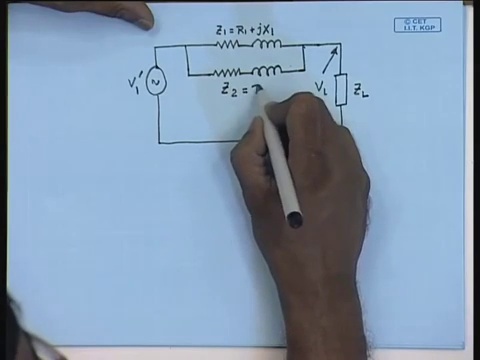 © CET
I.I.T. KGP
Z₁ = R₁ + jX₁
V₁′
~
Z₂ =
V_L
Z_L